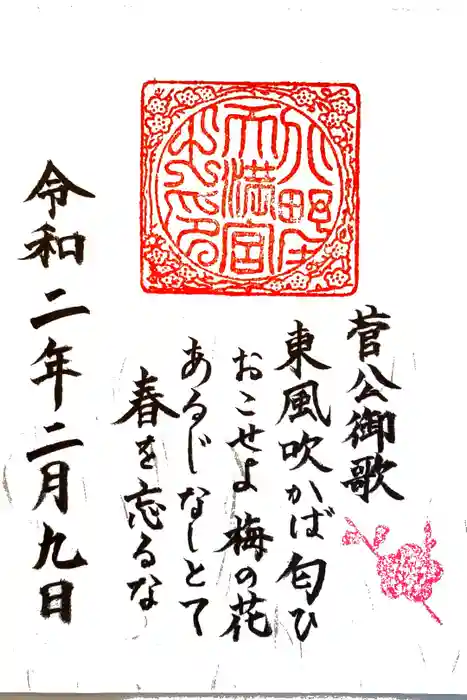 菅公御歌
東風吹かば匂ひ
おこせよ梅の花
あるじなしとて
春を忘るな
令和二年二月九日
天満宮